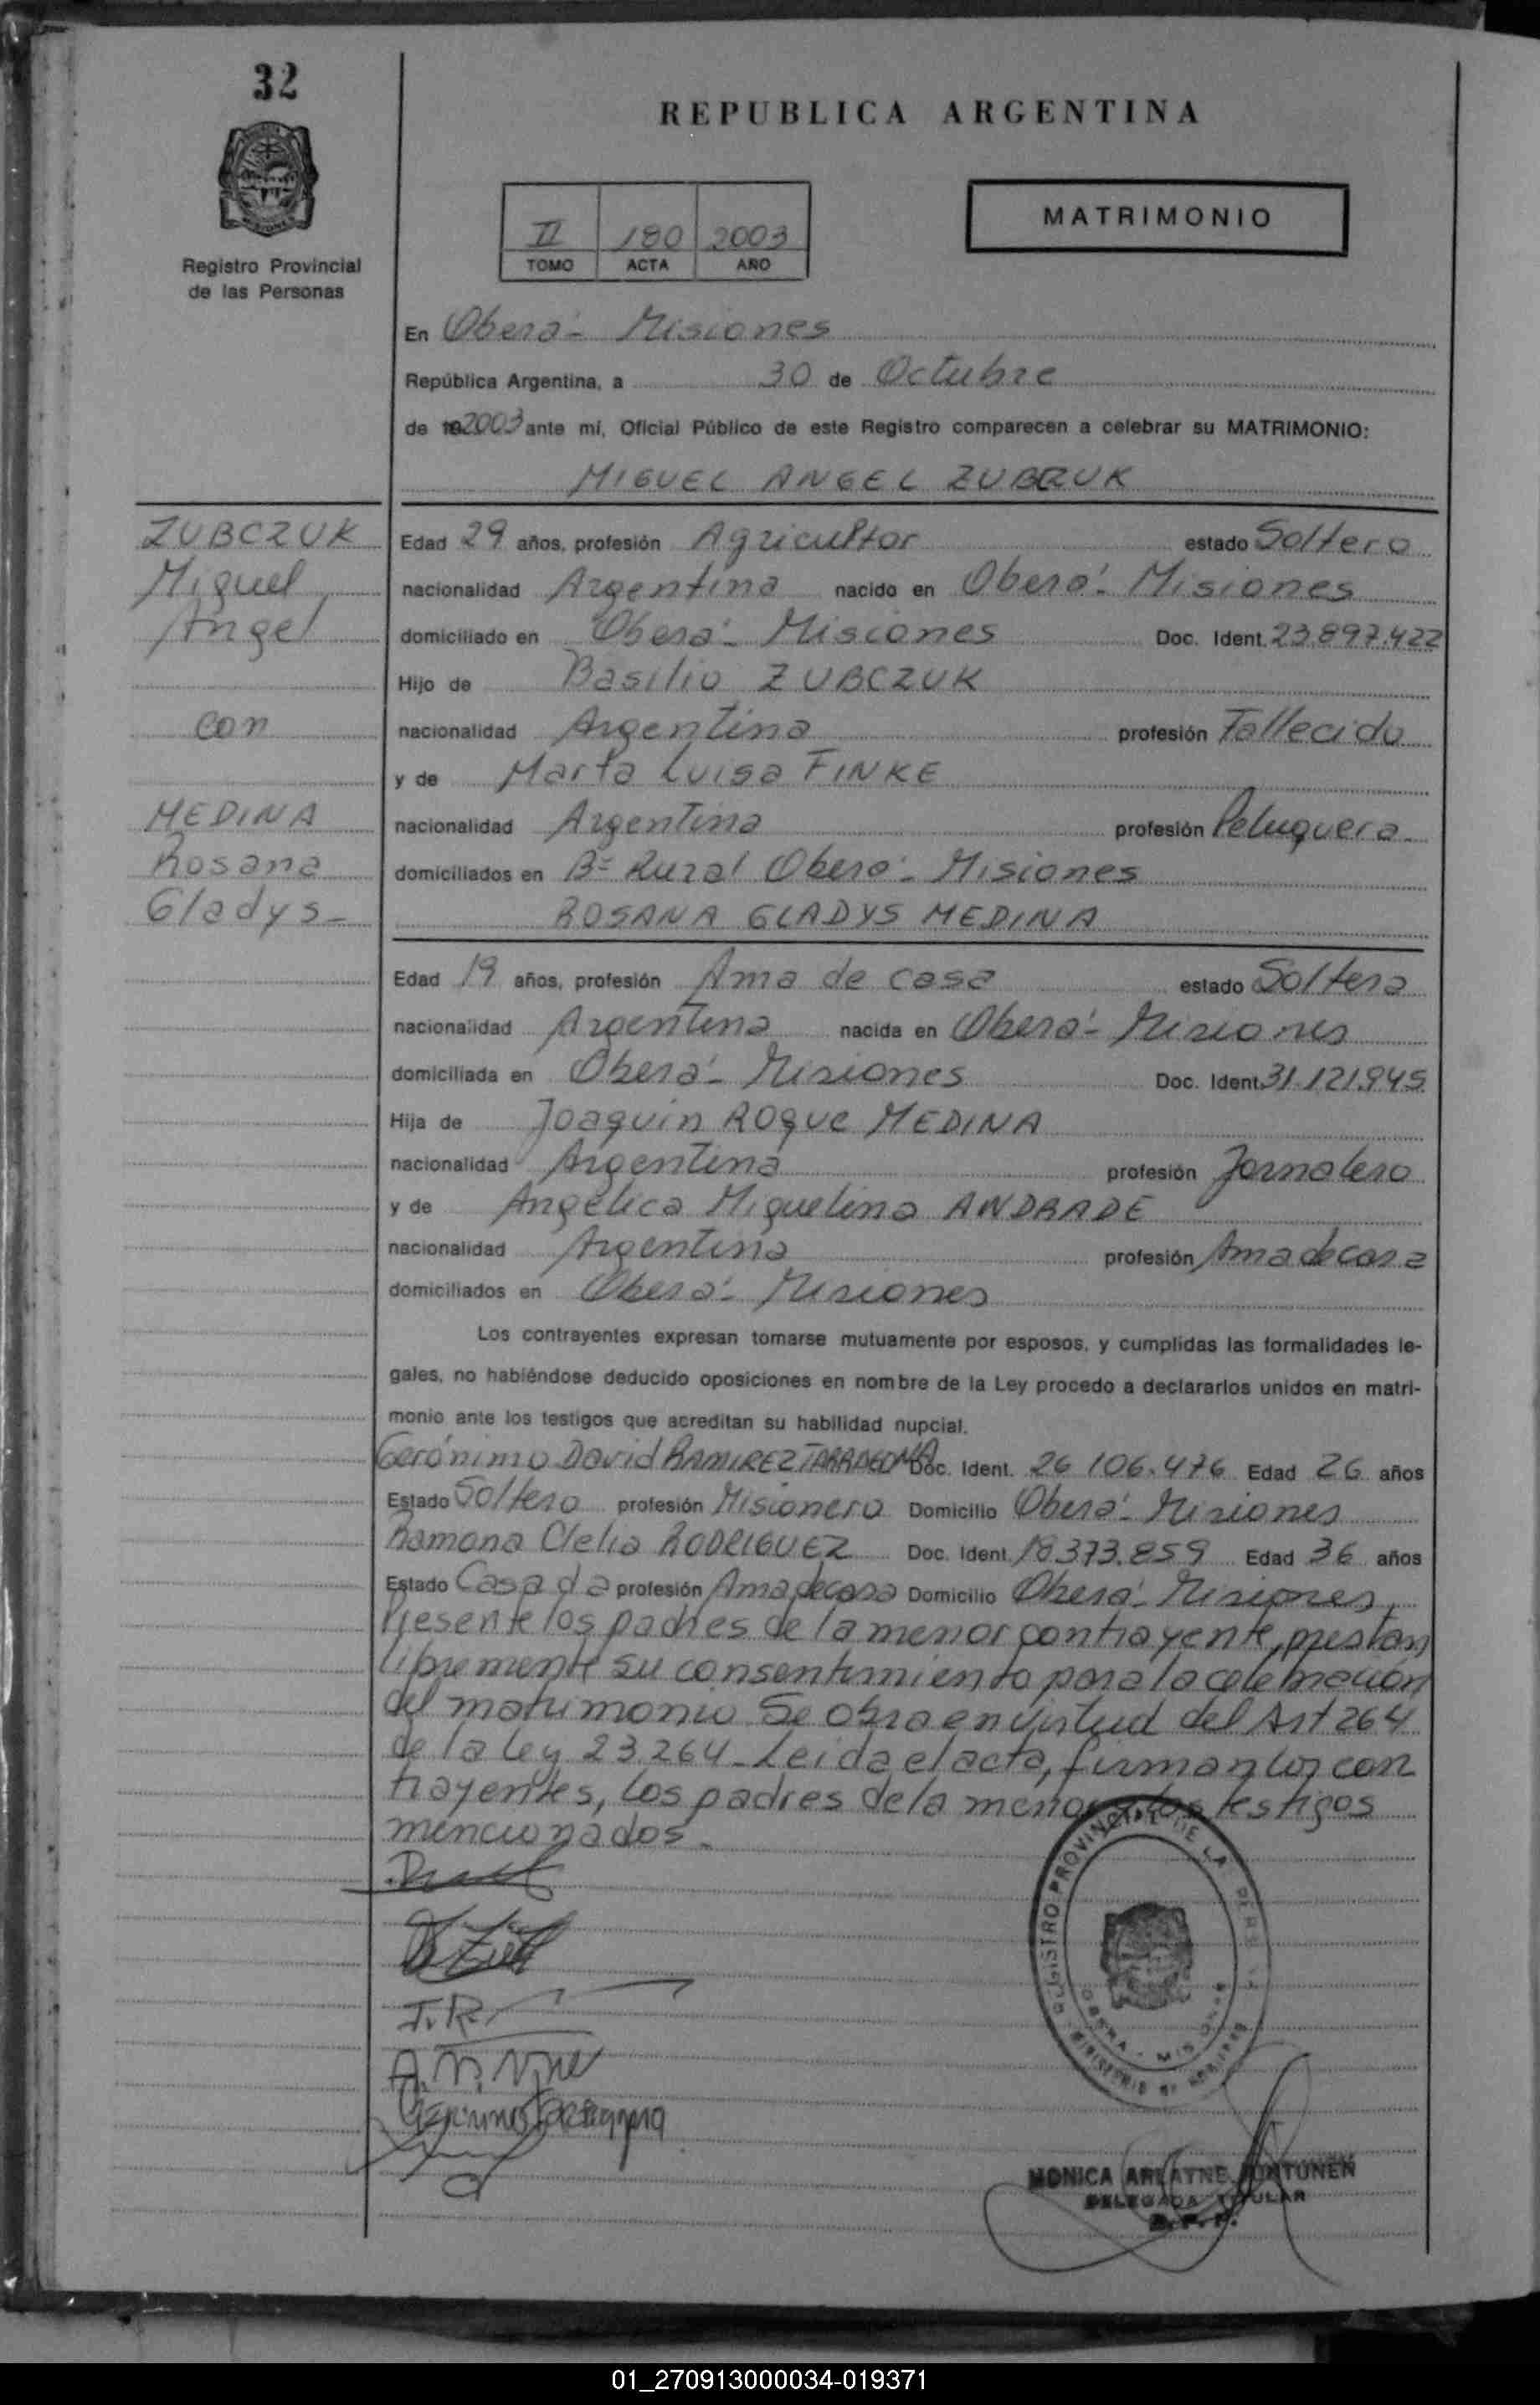 32
REPUBLICA ARGENTINA
MATRIMONIO
II 180 2003
TOMO ACTA AÑO
Registro Provincial
de las Personas
En Oberá - Misiones
República Argentina, a 30 de Octubre
de 2003 ante mí, Oficial Público de este Registro comparecen a celebrar su MATRIMONIO:
MIGUEL ANGEL ZUBCZUK
ZUBCZUK
Miguel
Angel
con
MEDINA
Rosana
Gladys -
Edad 29 años, profesión Agricultor estado Soltero
nacionalidad Argentina nacido en Oberá - Misiones
domiciliado en Oberá - Misiones Doc. Ident. 23.897.422
Hijo de Basilio ZUBCZUK
nacionalidad Argentina profesión Fallecido
y de Marta Luisa FINKE
nacionalidad Argentina profesión Peluquera
domiciliados en Bº Rural Oberá - Misiones
ROSANA GLADYS MEDINA
Edad 19 años, profesión Ama de casa estado Soltera
nacionalidad Argentina nacida en Oberá - Misiones
domiciliada en Oberá - Misiones Doc. Ident. 31.121.945
Hija de Joaquin Roque MEDINA
nacionalidad Argentina profesión Jornalero
y de Angélica Miguelina ANDRADE
nacionalidad Argentina profesión Ama de casa
domiciliados en Oberá - Misiones
Los contrayentes expresan tomarse mutuamente por esposos, y cumplidas las formalidades le-
gales, no habiéndose deducido oposiciones en nombre de la Ley procedo a declararlos unidos en matri-
monio ante los testigos que acreditan su habilidad nupcial.
Gerónimo David RAMIREZ TARRAGONA Doc. Ident. 26.106.476 Edad 26 años
Estado Soltero profesión Misionero Domicilio Oberá - Misiones
Ramona Clelia RODRIGUEZ Doc. Ident. 18.373.859 Edad 36 años
Estado Casada profesión Ama de casa Domicilio Oberá - Misiones
Presente los padres de la menor contrayente, prestan
libremente su consentimiento para la celebración
del matrimonio Se obra en virtud del Art 264
de la ley 23.264 - Leida el acta, firman los con
trayentes, los padres de la menor y los testigos
mencionados -
REGISTRO PROVINCIAL DE LA
OBERA - MISIONES
J.R.
MONICA
DELEGADA TITULAR
R.P.P.
01_270913000034-019371